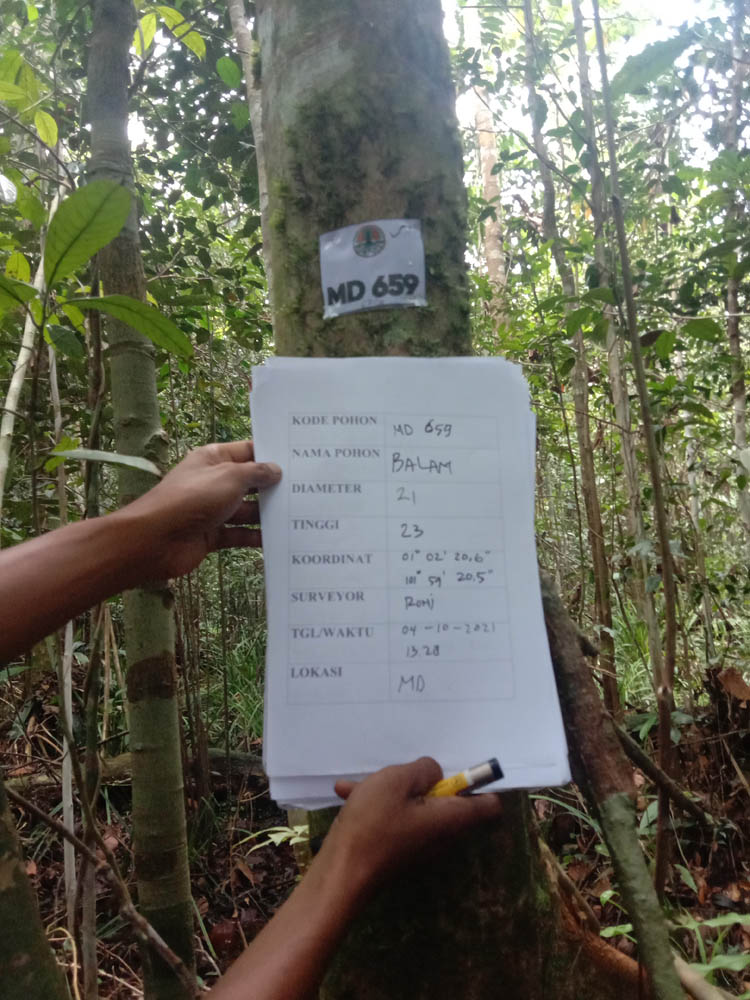 MD 659
KODE POHON MD 659
NAMA POHON BALAM
DIAMETER 21
TINGGI 23
KOORDINAT 01° 02' 20,6"
101° 59' 20.5"
SURVEYOR Romi
TGL/WAKTU 04-10-2021
13.28
LOKASI MD